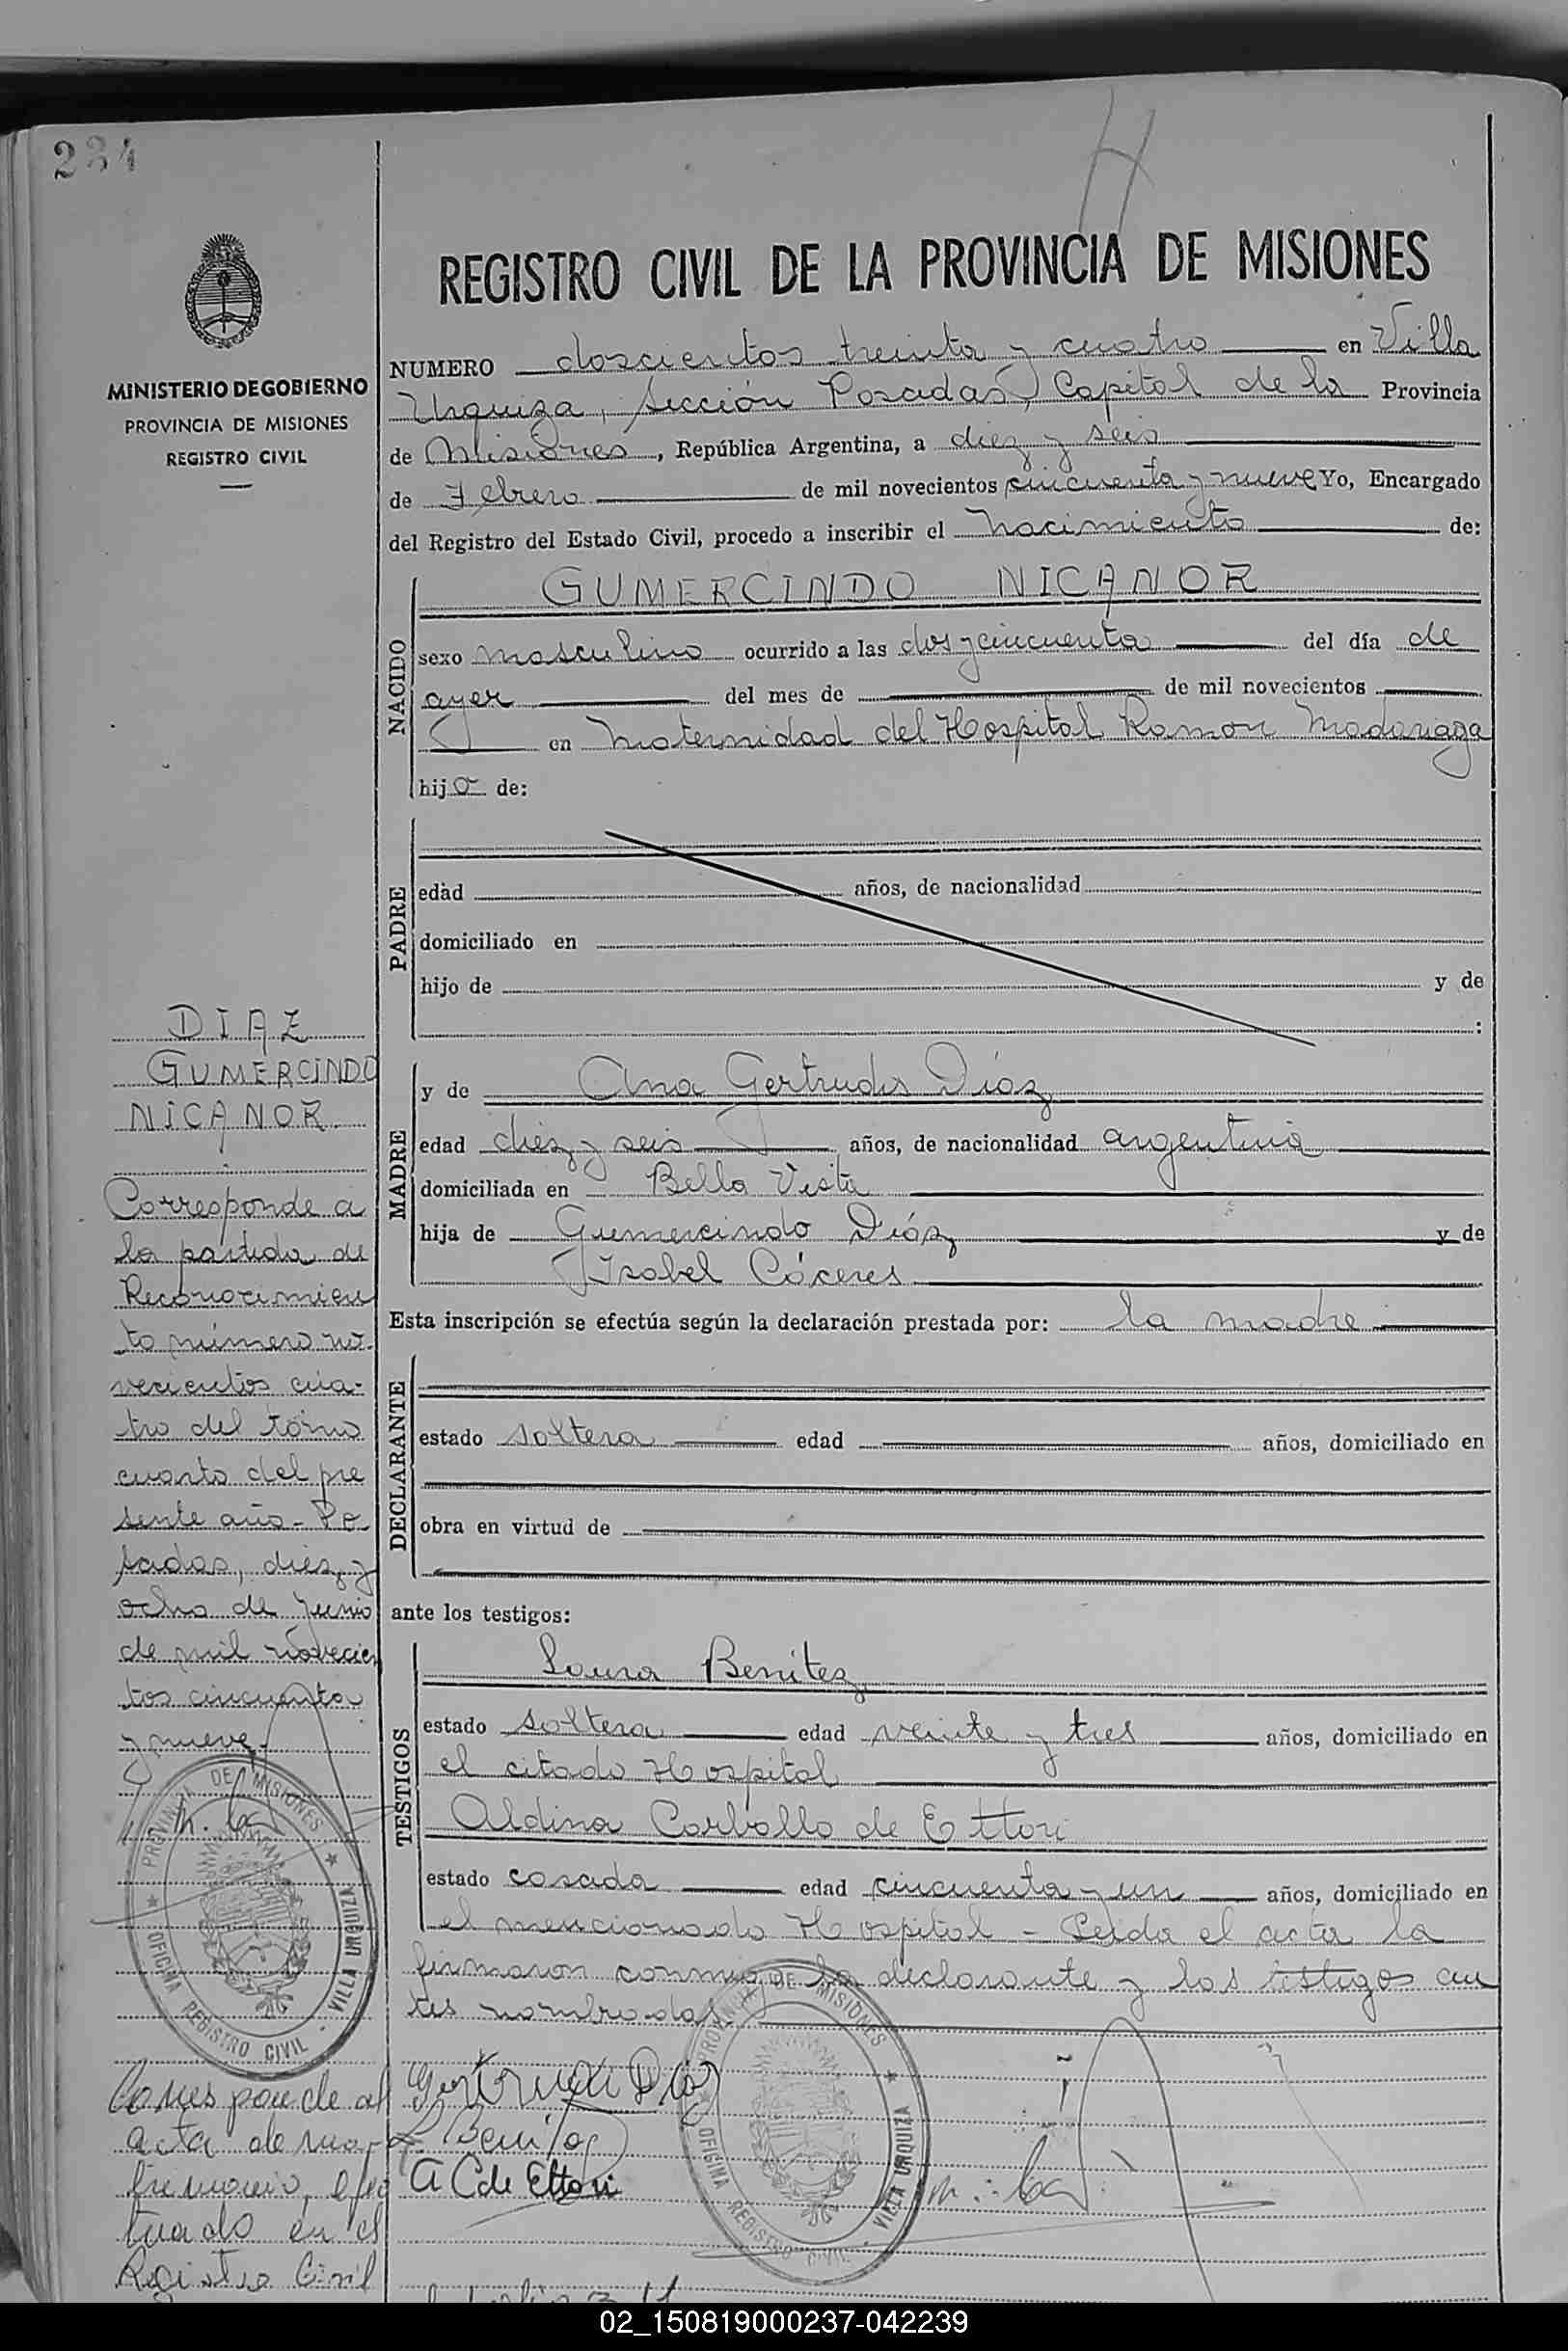 234
MINISTERIO DE GOBIERNO
PROVINCIA DE MISIONES
REGISTRO CIVIL
H
REGISTRO CIVIL DE LA PROVINCIA DE MISIONES
NUMERO doscientos treinta y cuatro en Villa
Urquiza, Sección Posadas, Capital de la Provincia
de Misiones, República Argentina, a diez y seis
de Febrero de mil novecientos cincuenta y nueve Yo, Encargado
del Registro del Estado Civil, procedo a inscribir el nacimiento de:
NACIDO
GUMERCINDO NICANOR
sexo masculino ocurrido a las dos y cincuenta del día de
ayer del mes de de mil novecientos
en Maternidad del Hospital Ramon Madariaga
hijo de:
PADRE
edad años, de nacionalidad
domiciliado en
hijo de y de
:
MADRE
y de Ana Gertrudis Díaz
edad diez y seis años, de nacionalidad argentina
domiciliada en Bella Vista
hija de Gumercindo Díaz y de
Isabel Cáceres
Esta inscripción se efectúa según la declaración prestada por: la madre
DECLARANTE
estado soltera edad años, domiciliado en
obra en virtud de
ante los testigos:
TESTIGOS
Laura Benítez
estado soltera edad veinte y tres años, domiciliado en
el citado Hospital
Aldina Carballo de Ettori
estado casada edad cincuenta y un años, domiciliado en
el mencionado Hospital - Leida el acta la
firmaron conmigo la declarante y los testigos an
tes nombrados
Gertrudi Díaz
L Benitez
A C de Ettori
PROVINCIA DE MISIONES
OFICINA REGISTRO CIVIL - VILLA URQUIZA
DIAZ
GUMERCINDO
NICANOR
Corresponde a
la partida de
Reconocimien
to número no-
vecientos cua-
tro del tomo
cuarto del pre
sente año - Po
sadas, diez y
ocho de junio
de mil novecien
tos cincuenta
y nueve.-
PROVINCIA DE MISIONES
OFICINA REGISTRO CIVIL - VILLA URQUIZA
Corresponde al
acta de ma-
trimonio, efec
tuado en el
Registro Civil
02_150819000237-042239